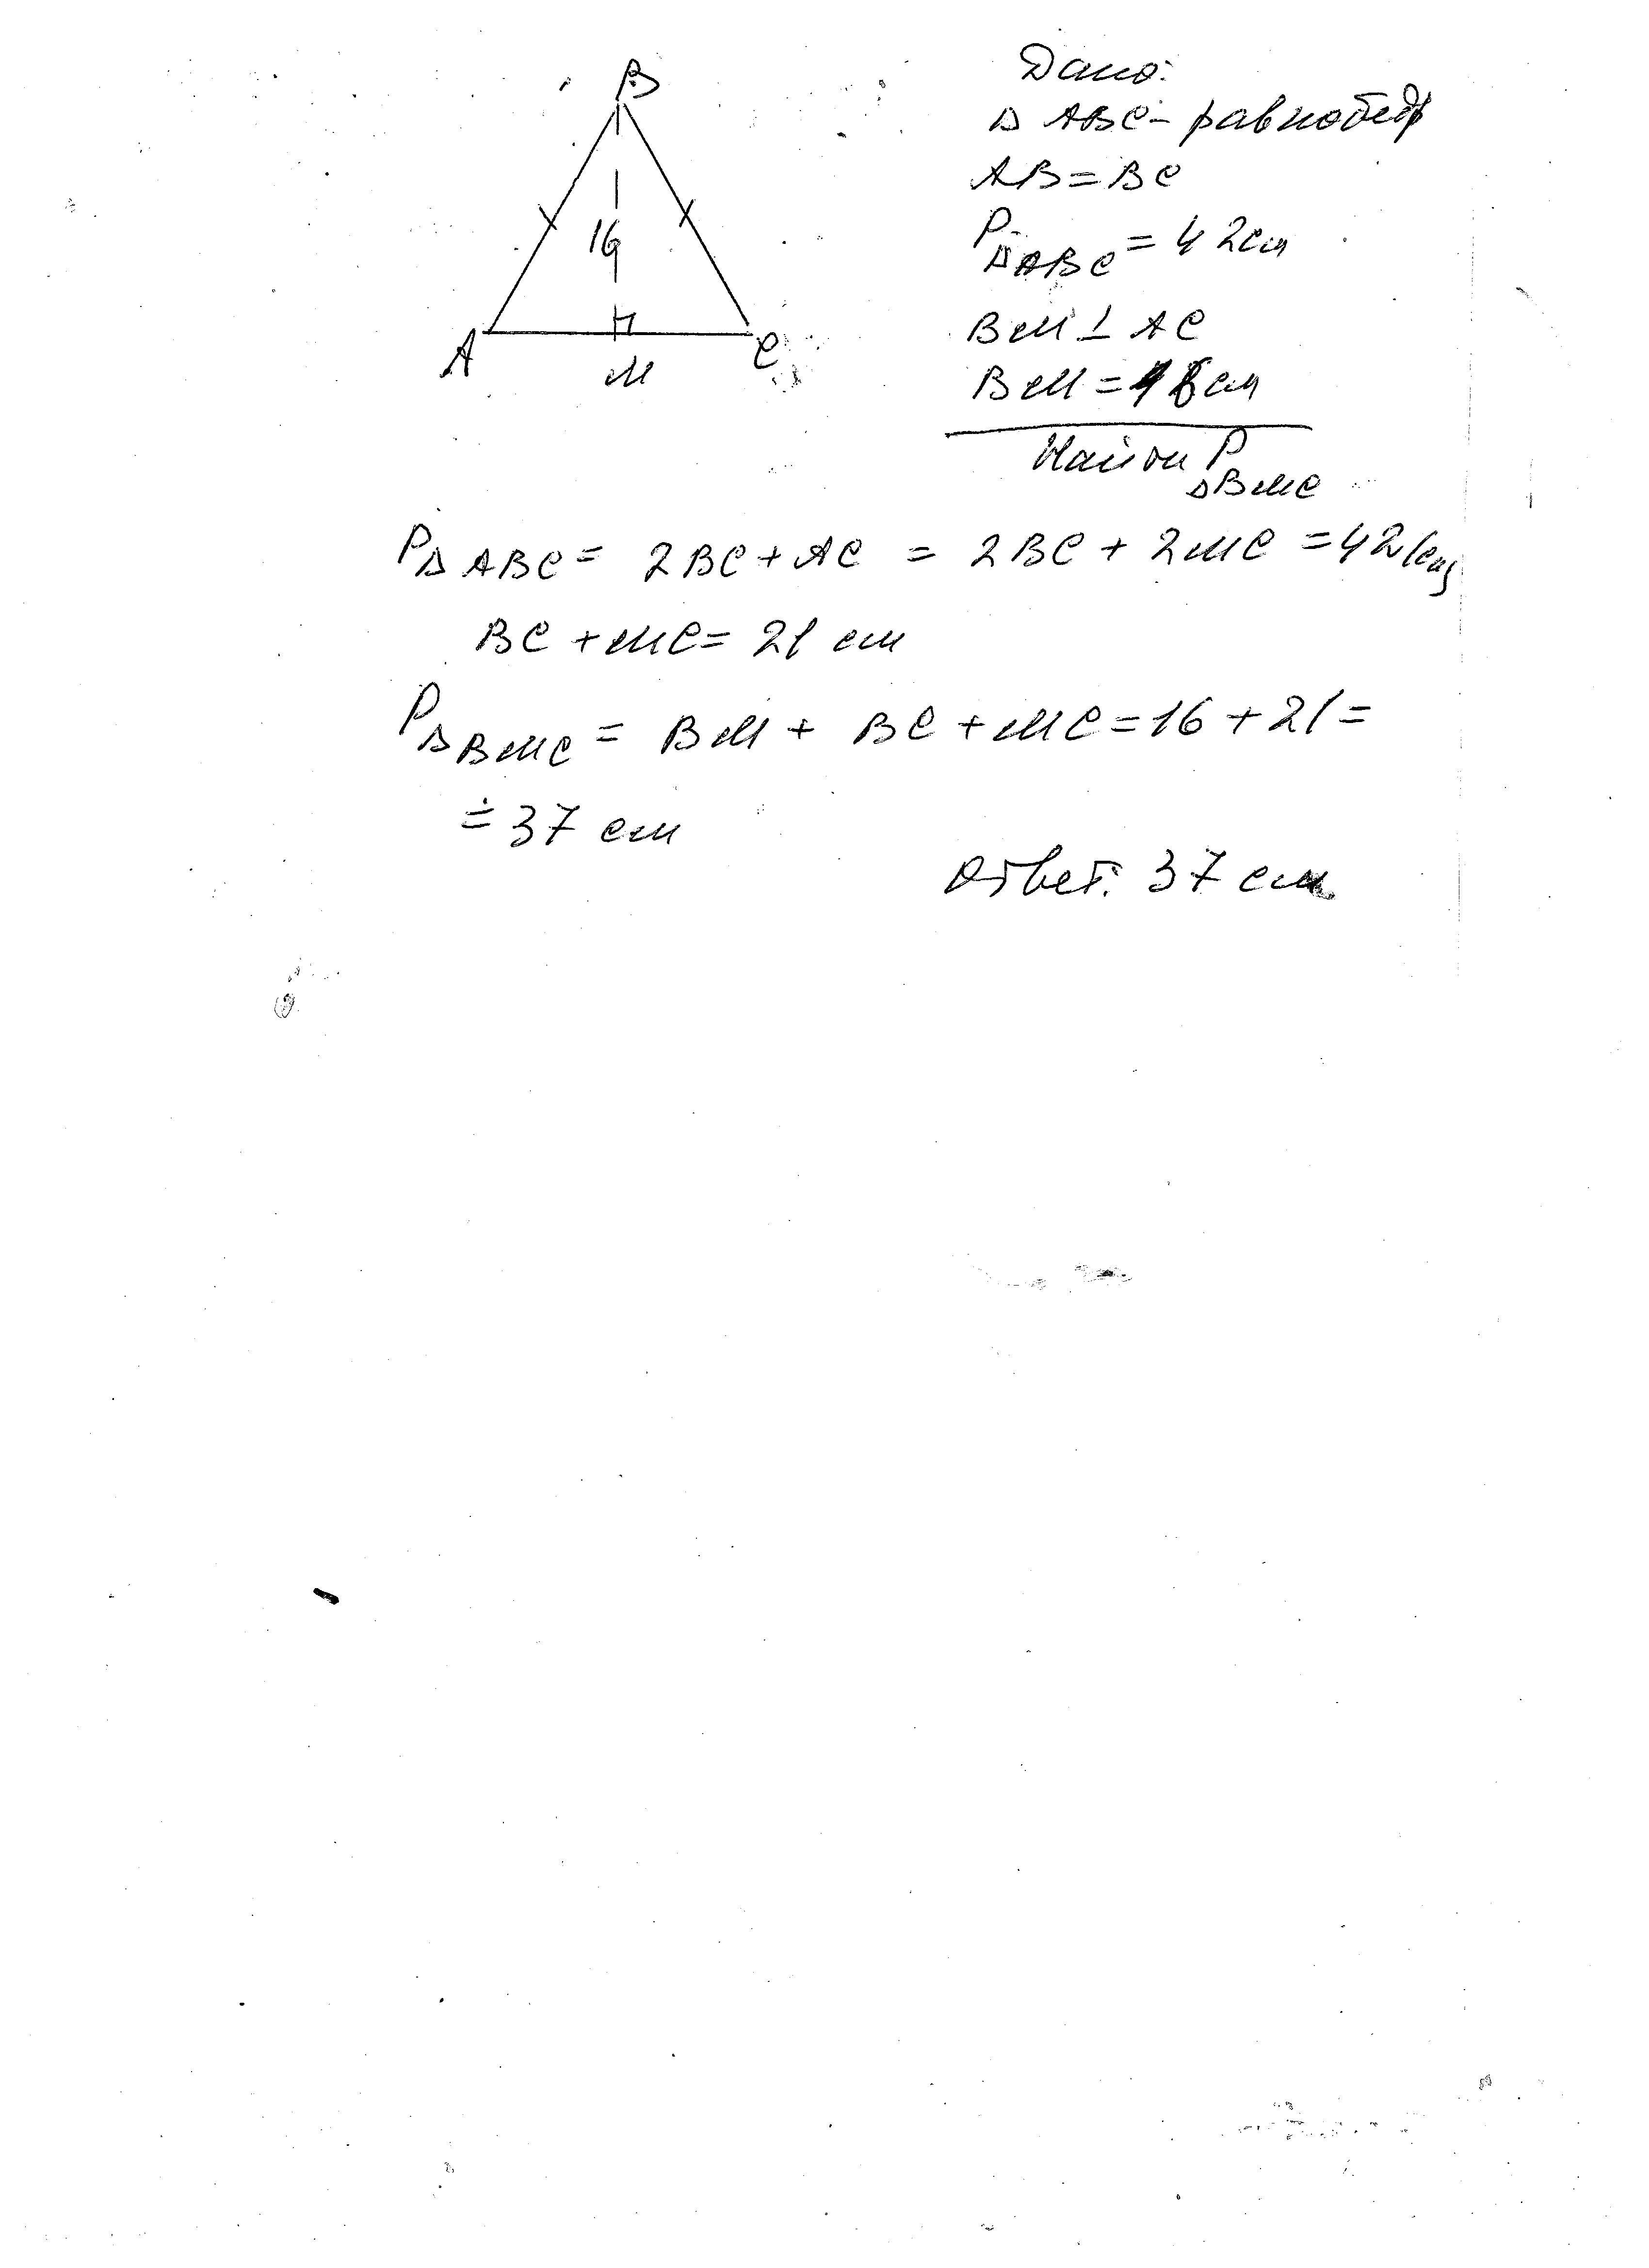 B
16
A
M
C
Дано:
Δ ABC - равнобедр
AB = BC
P ΔABC = 42 см
BM ⊥ AC
BM = 16 см
Найти P ΔBMC
P Δ ABC = 2BC + AC = 2BC + 2MC = 42 (см)
BC + MC = 21 см
P Δ BMC = BM + BC + MC = 16 + 21 =
= 37 см
Ответ: 37 см